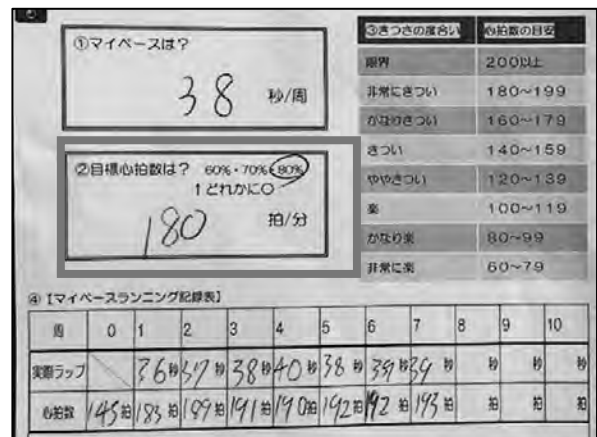 ①マイペースは?
38 秒/周
②目標心拍数は? 60%・70%・80%
↑どれかに○
180 拍/分
③きつさの度合い 心拍数の目安
限界 200以上
非常にきつい 180~199
かなりきつい 160~179
きつい 140~159
ややきつい 120~139
楽 100~119
かなり楽 80~99
非常に楽 60~79
④【マイペースランニング記録表】
周 0 1 2 3 4 5 6 7 8 9 10
実際ラップ 36秒 37秒 38秒 40秒 38秒 39秒 39秒 秒 秒 秒
心拍数 145拍 183拍 189拍 191拍 190拍 192拍 192拍 193拍 拍 拍 拍